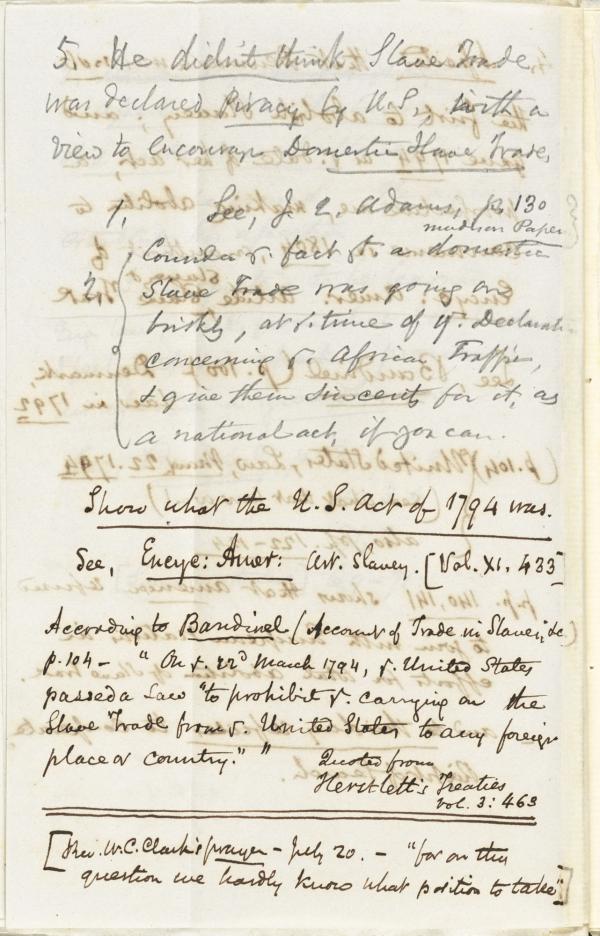 5. He didn't think Slave Trade
was declared Piracy by U.S., with a
view to encourage Domestic Slave Trade.
1, See, J. Q. Adams, p. 130
Madison Paper
2, Consider fact a domestic
Slave Trade was going on
briskly, at time of Declarat
concerning African Traffic,
& give them sincerity for it, as
a national act, if you can.
Show what the U.S. Act of 1794 was.
See, Encyc: Amer: Art. Slavery. [Vol. XI. 433]
According to Bandinel (Account of Trade in Slaves, &c
p. 104 - " On 22d March 1794, United States
passed a Law "to prohibit carrying on the
Slave Trade from United States to any foreign
place or country." "
Quoted from
Herstlett's Treaties
vol. 3: 463
[Rev. W. C. Clark's prayer - July 20. - "for on this
question we hardly know what position to take"]